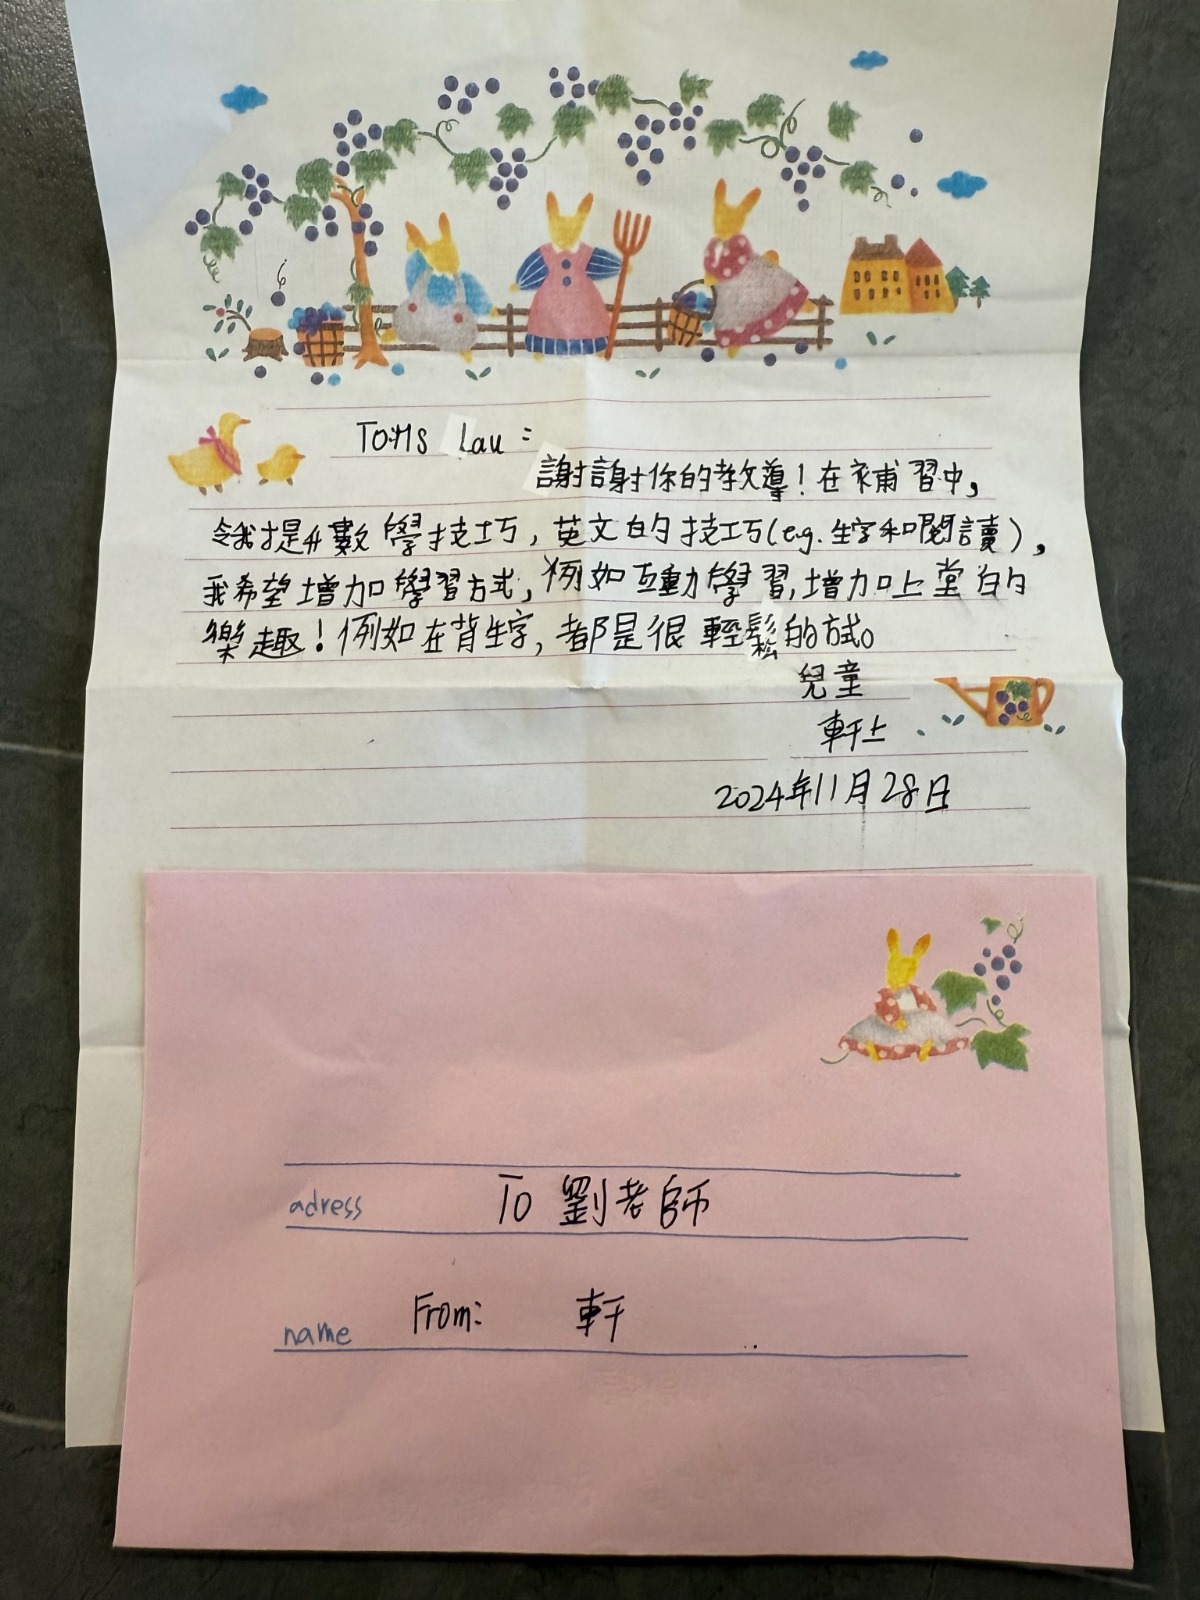 To:Ms Lau：
謝謝你的教導！在補習中，
令我提升數學技巧，英文的技巧(e.g.生字和閱讀)，
我希望增加學習方式，例如互動學習，增加上堂的
樂趣！例如在背生字，都是很輕鬆的方式。
兒童
軒上
2024年11月28日
adress To 劉老師
name From: 軒